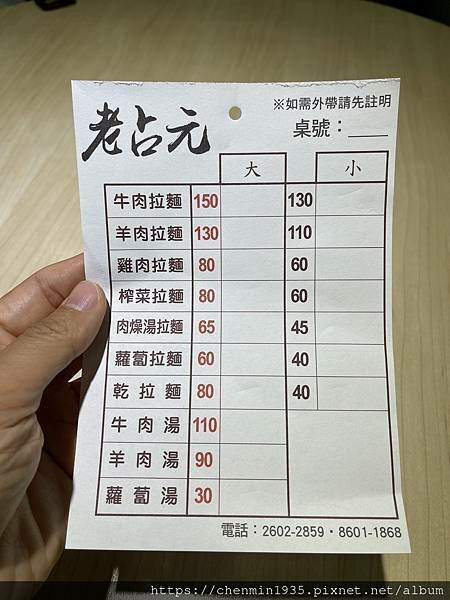 ※如需外帶請先註明
老占元
桌號：____
大 小
牛肉拉麵 150 130
羊肉拉麵 130 110
雞肉拉麵 80 60
榨菜拉麵 80 60
肉燥湯拉麵 65 45
蘿蔔拉麵 60 40
乾拉麵 80 40
牛肉湯 110
羊肉湯 90
蘿蔔湯 30
電話：2602-2859・8601-1868
https://chenmin1935.pixnet.net/album